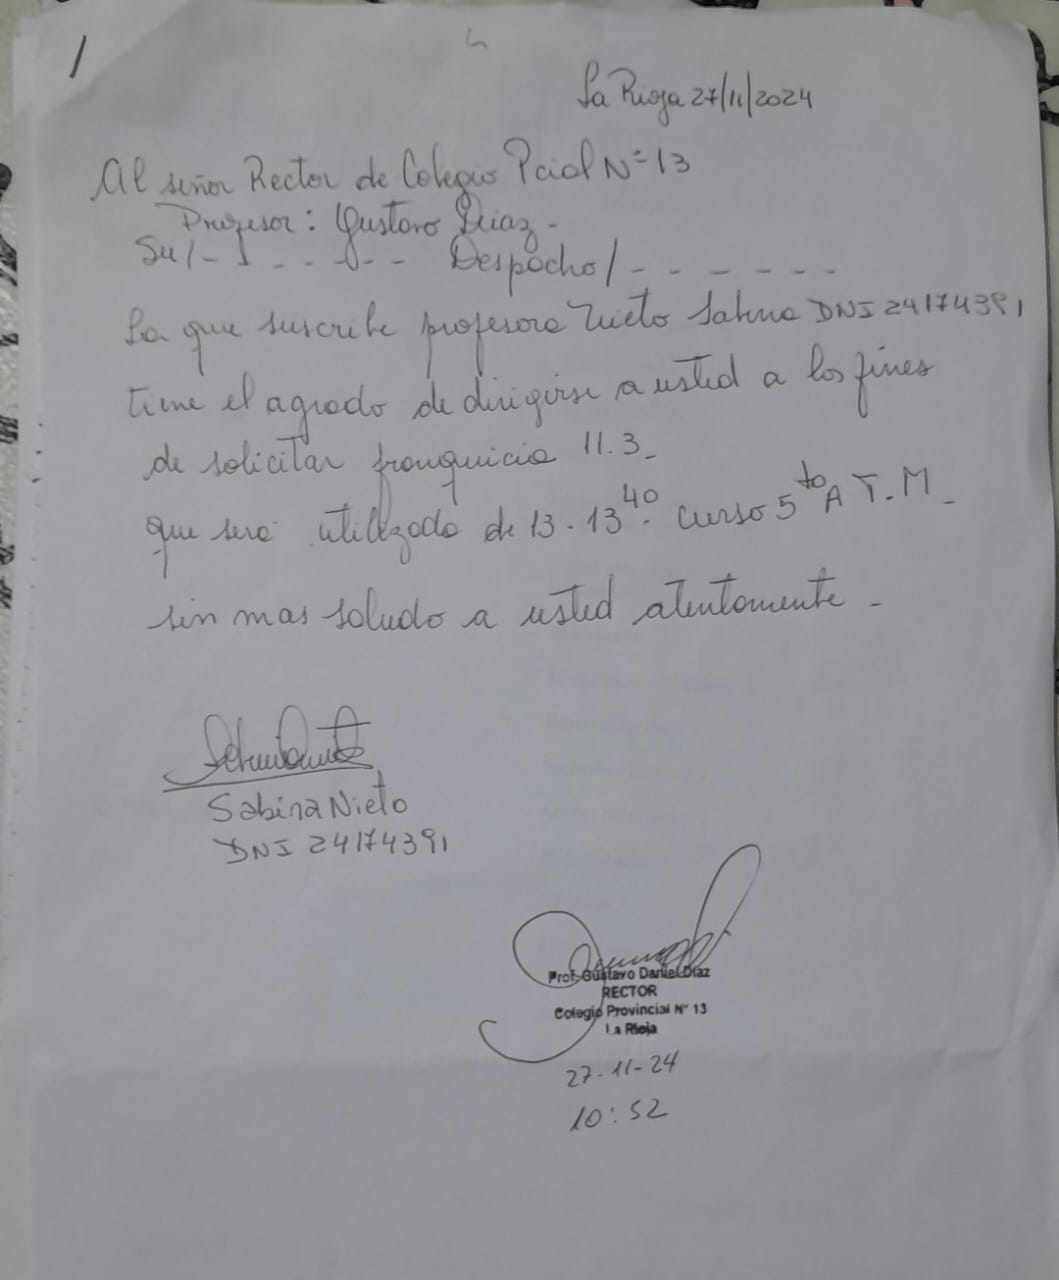 1
La Rioja 27/11/2024
Al señor Rector de Colegio Pcial Nº 13
Profesor: Gustavo Diaz -
Su/- - - - - - - Despacho/- - - - - -
La que suscribe profesora Nieto Sabina DNI 24174391
tiene el agrado de dirigirse a usted a los fines
de solicitar franquicia 11.3_
que será utilizada de 13 - 13 40. curso 5to A T.M_
sin mas saludo a usted atentamente -
Sabina Nieto
DNI 24174391
Prof. Gustavo Daniel Díaz
RECTOR
Colegio Provincial Nº 13
La Rioja
27-11-24
10:52